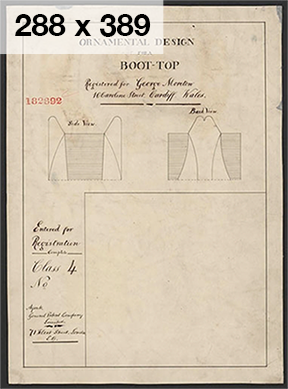 288 x 389
ORNAMENTAL DESIGN
FOR A
BOOT-TOP
Registered for George Morton
Street, Cardiff, Wales.
182892
Side View
Back View
Entered for
Registration
Complete
Class 4
No
Agents
General Patent Company
Limited
71 Fleet Street, London
E.C.